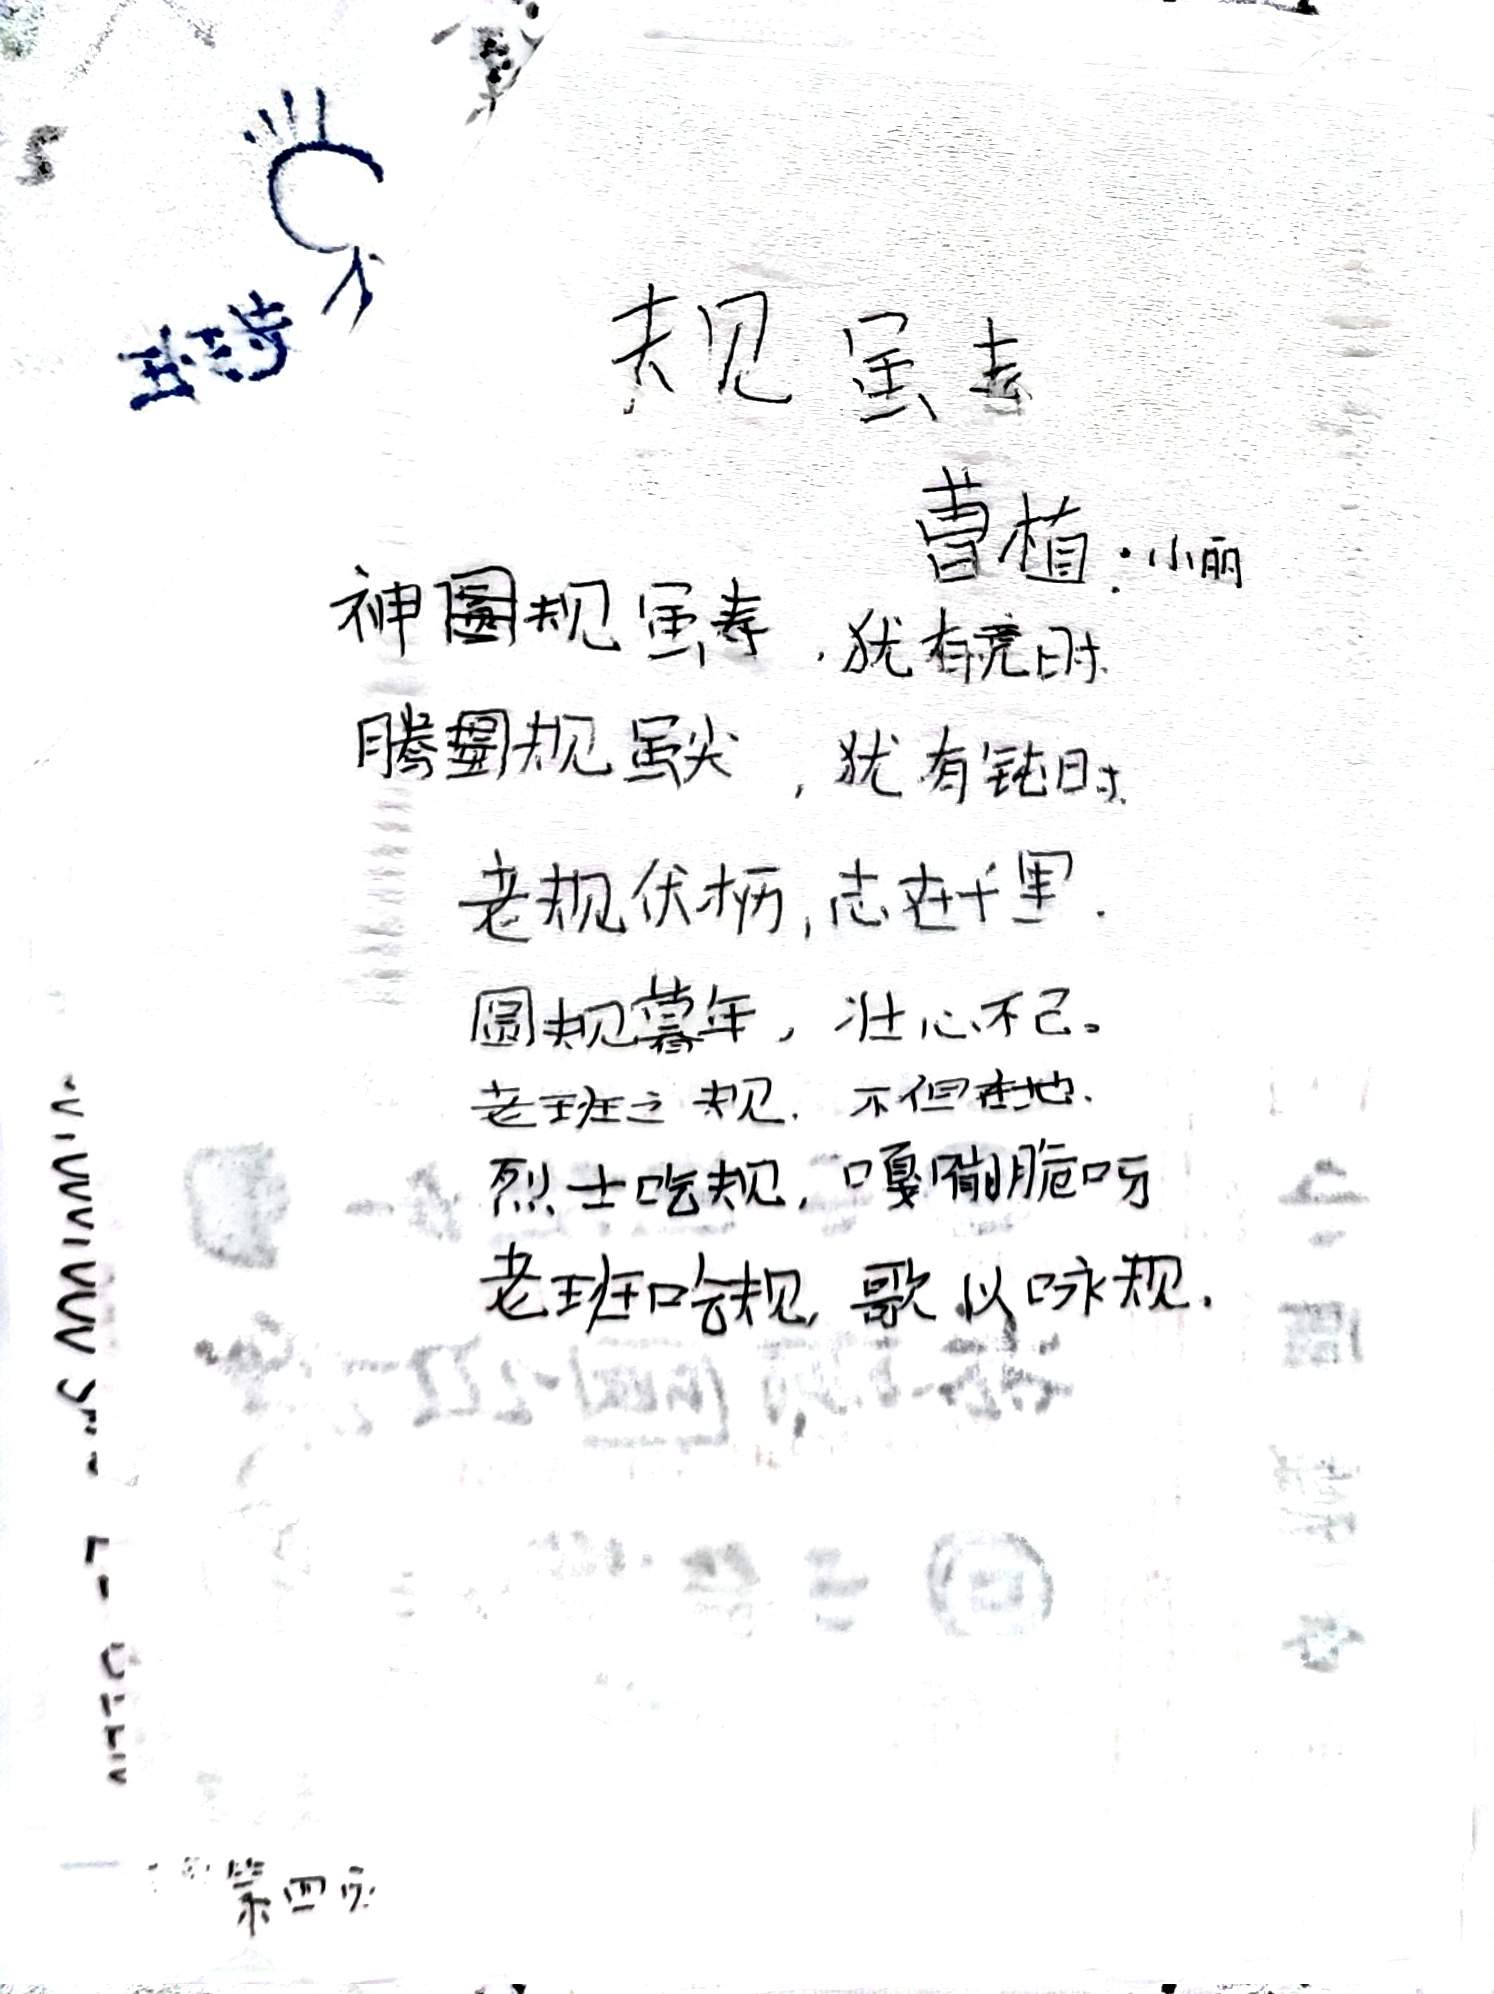 班诗
规虽去
曹植:小丽
神圆规虽寿,犹有竟时.
腾圆规虽尖,犹有钝时.
老规伏柄,志在千里.
圆规暮年,壮心不己。
老班之规.不但在地.
烈士吃规,嘎嘣脆呀
老班哈规,歌以咏规.
第四页